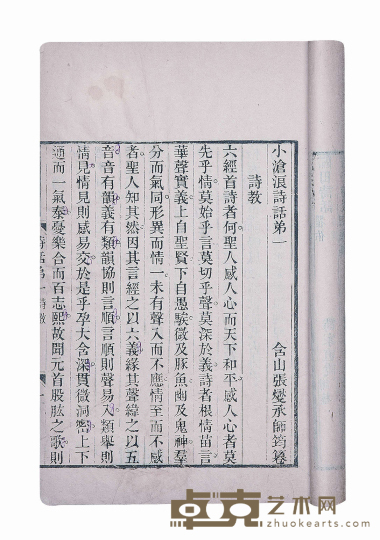 小滄浪詩話弟一
含山張燮承師筠纂
詩教
六經首詩者何聖人感人心而天下和平感人心者莫
先乎情莫始乎言莫切乎聲莫深於義詩者根情苗言
華聲實義上自聖賢下自愚騃微及豚魚幽及鬼神羣
分而氣同形異而情一未有聲入而不應情至而不感
者聖人知其然因其言經之以六義緣其聲緯之以五
音音有韻義有類韻協則言順言順則聲易入類舉則
情見情見則感易交於是乎孕大含深貫微洞密上下
通而一氣泰憂樂合而百志熙故聞元首股肱之歌則
詩話弟一
詩教
卓克艺术网
zhuokearts.com